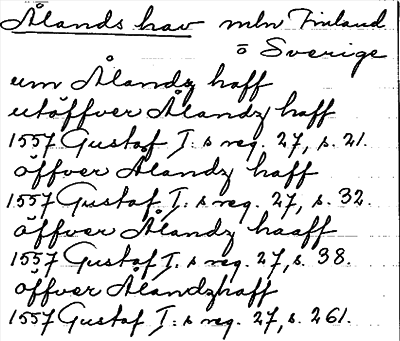 Ålands hav mln Finland
o Sverige
um Ålandz haff
utöffver Ålandz haff
1557 Gustaf I: s reg. 27, s. 21.
öffver Ålandz haff
1557 Gustaf I: s reg. 27, s. 32.
öffver Ålandz haaff
1557 Gustaf I: s reg. 27, s. 38.
öffver Ålandzhaff
1557 Gustaf I: s reg. 27, s. 261.